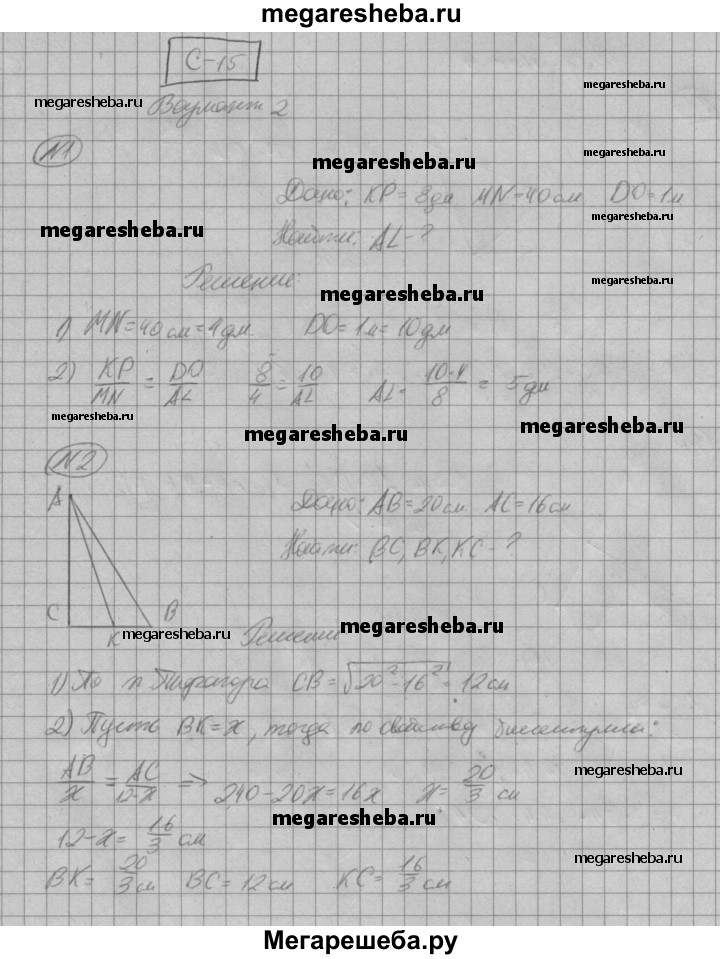 megaresheba.ru
С-15
megaresheba.ru
megaresheba.ru
Вариант 2
№1
megaresheba.ru
Дано: KP = 8дм MN=40см DO=1м
megaresheba.ru
megaresheba.ru
Найти: AL-?
Решение:
megaresheba.ru
megaresheba.ru
1) MN=40см=4дм. DO=1м=10дм
2) KP/MN = DO/AL 8/4 = 10/AL AL= 10·4/8 = 5дм
megaresheba.ru
megaresheba.ru
megaresheba.ru
№2
A
Дано: AB=20см AC=16см
Найти: BC, BK, KC-?
C K B
megaresheba.ru
Решение
megaresheba.ru
1) По т. Пифагора CB=√20²-16² = 12см
2) Пусть BK=x, тогда по свойству биссектрисы:
AB/x = AC/12-x => 240-20x=16x x= 20/3 см
megaresheba.ru
megaresheba.ru
12-x= 16/3 см
megaresheba.ru
BK= 20/3 см BC=12см KC= 16/3 см
Мегарешеба.ру